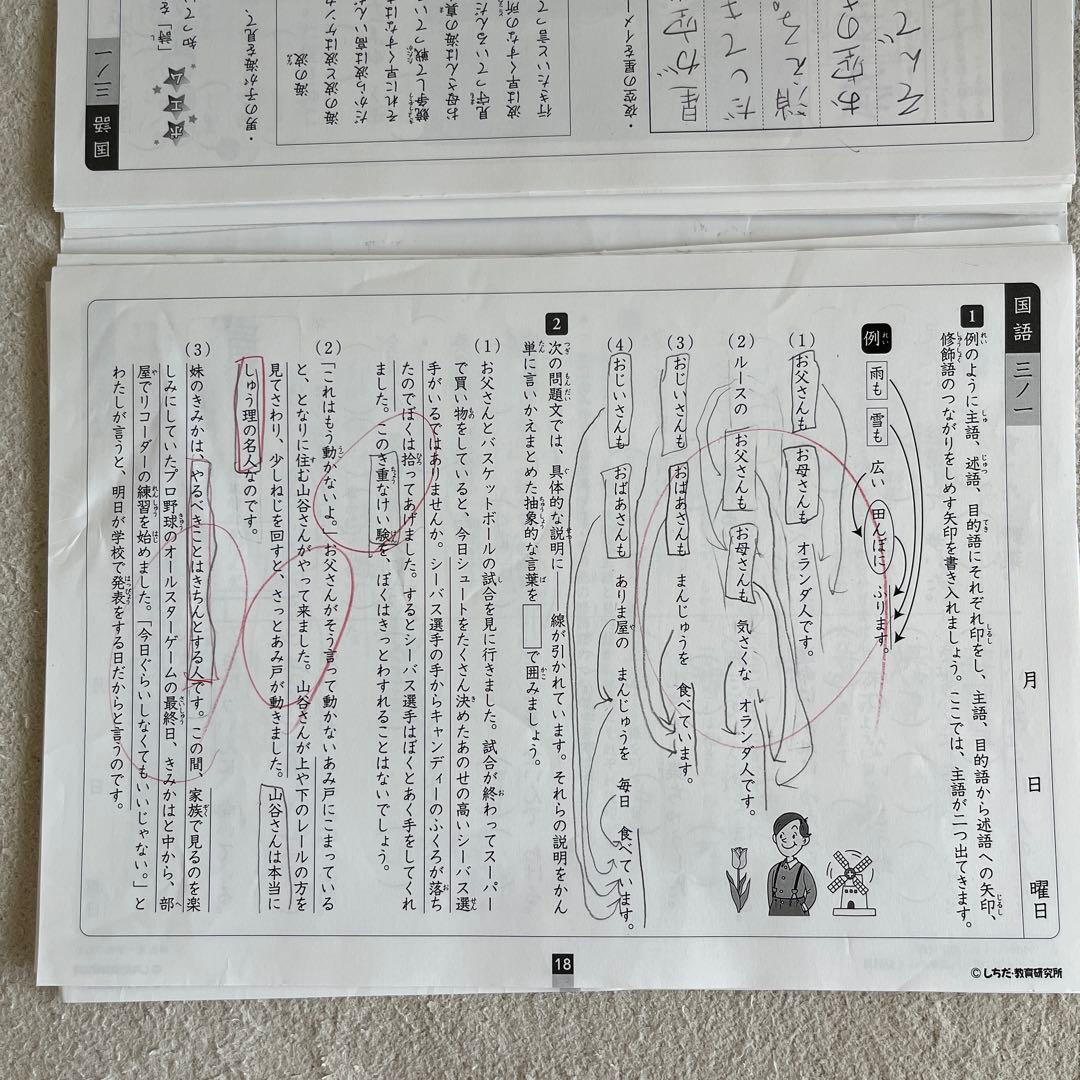 国語
三ノ一
ポエム
「詩」を
知ってい
・男の子が海を見て、
海の波
海の波と波はケン
だから波は高いんだ
それに早くすなは
競争して戦ってい
お母さんは海の真
見守っているんだ
波は早くすなの所
行きたいと言って
・夜空の星をイメー
星が空
だしてき
消える。
お空の
そんで
国語
三ノ一
月
日
曜日
1
例のように主語、述語、目的語にそれぞれ印をし、主語、目的語から述語への矢印、
修飾語のつながりをしめす矢印を書き入れましょう。ここでは、主語が二つ出てきます。
例
雨も 雪も 広い 田んぼに ふります。
(1)
お父さんも お母さんも オランダ人です。
(2)
ルースの お父さんも お母さんも 気さくな オランダ人です。
(3)
おじいさんも おばあさんも まんじゅうを 食べています。
(4)
おじいさんも おばあさんも ありま屋の まんじゅうを 毎日 食べています。
2
次の問題文では、具体的な説明に 線が引かれています。それらの説明をかん
単に言いかえまとめた抽象的な言葉を で囲みましょう。
(1)
お父さんとバスケットボールの試合を見に行きました。試合が終わってスーパー
で買い物をしていると、今日シュートをたくさん決めたあのせの高いシーバス選
手がいるではありませんか。シーバス選手の手からキャンディーのふくろが落ち
たのでぼくは拾ってあげました。するとシーバス選手はぼくとあく手をしてくれ
ました。このき重なけい験を、ぼくはきっとわすれることはないでしょう。
(2)
「これはもう動かないよ。」お父さんがそう言って動かないあみ戸にこまっている
と、となりに住む山谷さんがやって来ました。山谷さんが上や下のレールの方を
見てさわり、少しねじを回すと、さっとあみ戸が動きました。山谷さんは本当に
しゅう理の名人なのです。
(3)
妹のきみかは、やるべきことはきちんとする人です。この間、家族で見るのを楽
しみにしていたプロ野球のオールスターゲームの最終日、きみかはと中から、部
屋でリコーダーの練習を始めました。「今日ぐらいしなくてもいいじゃない。」と
わたしが言うと、明日が学校で発表をする日だからと言うのです。
18
©しちだ・教育研究所